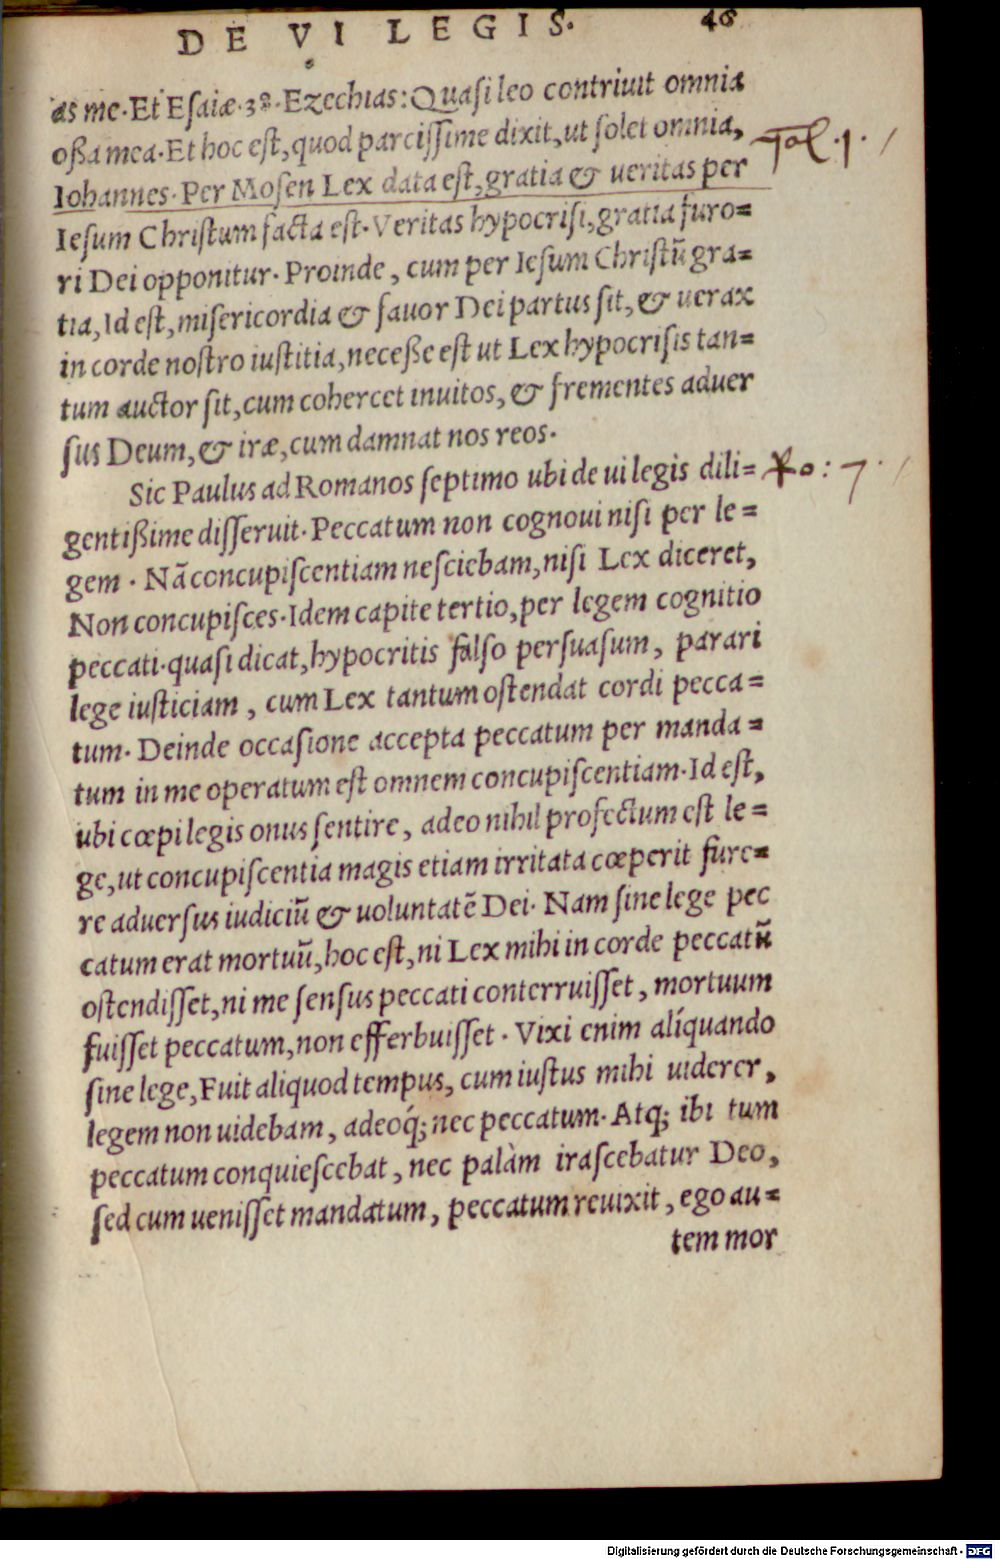 DE VI LEGIS. 46
as me. Et Esaiæ. 38. Ezechias: Quasi leo contriuit omnia
oßa mea. Et hoc est, quod parcissime dixit, ut solet omnia,
Iohannes. Per Mosen Lex data est, gratia & ueritas per
Iesum Christum facta est. Veritas hypocrisi, gratia furo=
ri Dei opponitur. Proinde, cum per Iesum Christū gra=
tia, Id est, misericordia & fauor Dei partus sit, & uerax
in corde nostro iustitia, neceße est ut Lex hypocrisis tan=
tum auctor sit, cum cohercet inuitos, & frementes aduer
sus Deum, & iræ, cum damnat nos reos.
Sic Paulus ad Romanos septimo ubi de ui legis dili=
gentißime disseruit. Peccatum non cognoui nisi per le=
gem. Nā concupiscentiam nesciebam, nisi Lex diceret,
Non concupisces. Idem capite tertio, per legem cognitio
peccati. quasi dicat, hypocritis falso persuasum, parari
lege iusticiam, cum Lex tantum ostendat cordi pecca=
tum. Deinde occasione accepta peccatum per manda=
tum in me operatum est omnem concupiscentiam. Id est,
ubi cœpi legis onus sentire, adeo nihil profectum est le=
ge, ut concupiscentia magis etiam irritata cœperit fure=
re aduersus iudiciū & uoluntatē Dei. Nam sine lege pec
catum erat mortuū, hoc est, ni Lex mihi in corde peccatū
ostendisset, ni me sensus peccati conterruisset, mortuum
fuisset peccatum, non efferbuisset. Vixi enim alíquando
sine lege, Fuit aliquod tempus, cum iustus mihi uiderer,
legem non uidebam, adeoq́; nec peccatum. Atq; ibi tum
peccatum conquiescebat, nec palàm irascebatur Deo,
sed cum uenisset mandatum, peccatum reuixit, ego au=
tem mor
Ro: 7.
Digitalisierung gefördert durch die Deutsche Forschungsgemeinschaft - DFG